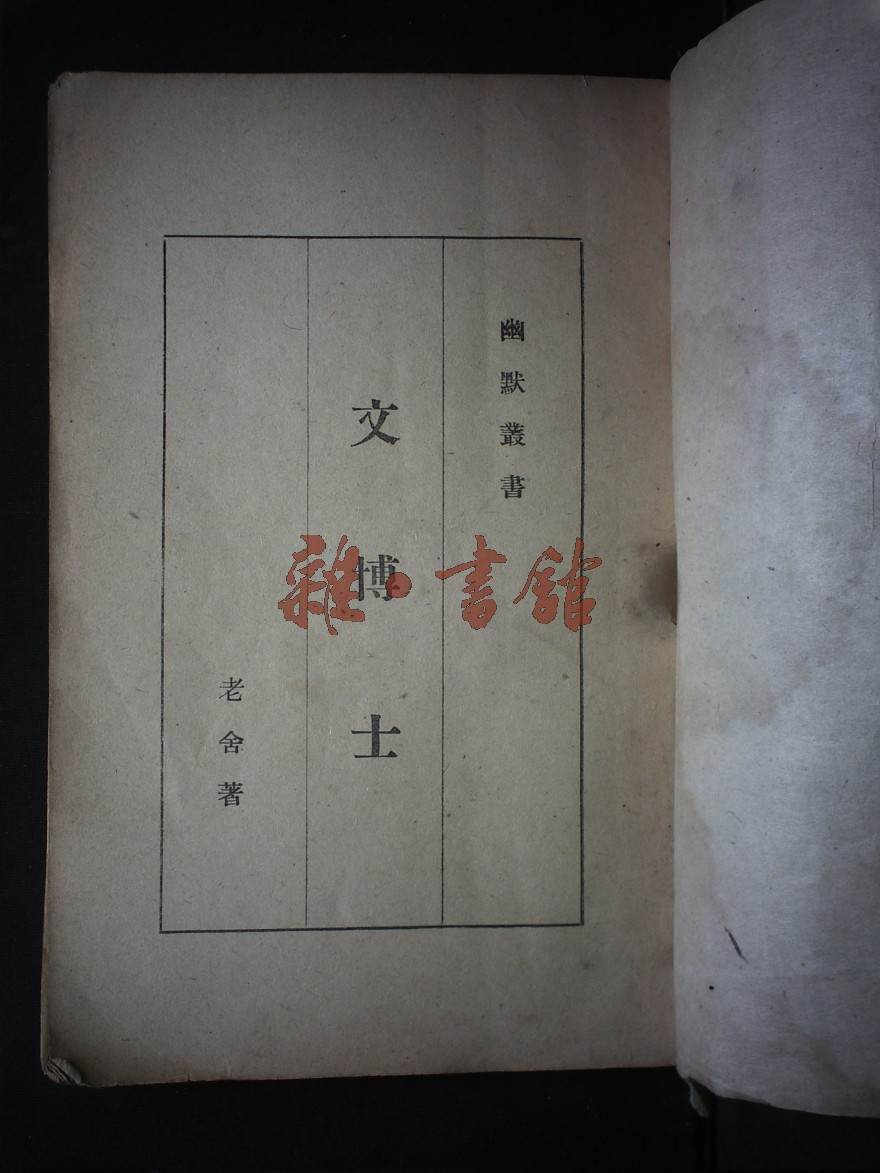 幽默叢書
文博士
老舍著
雜·書館